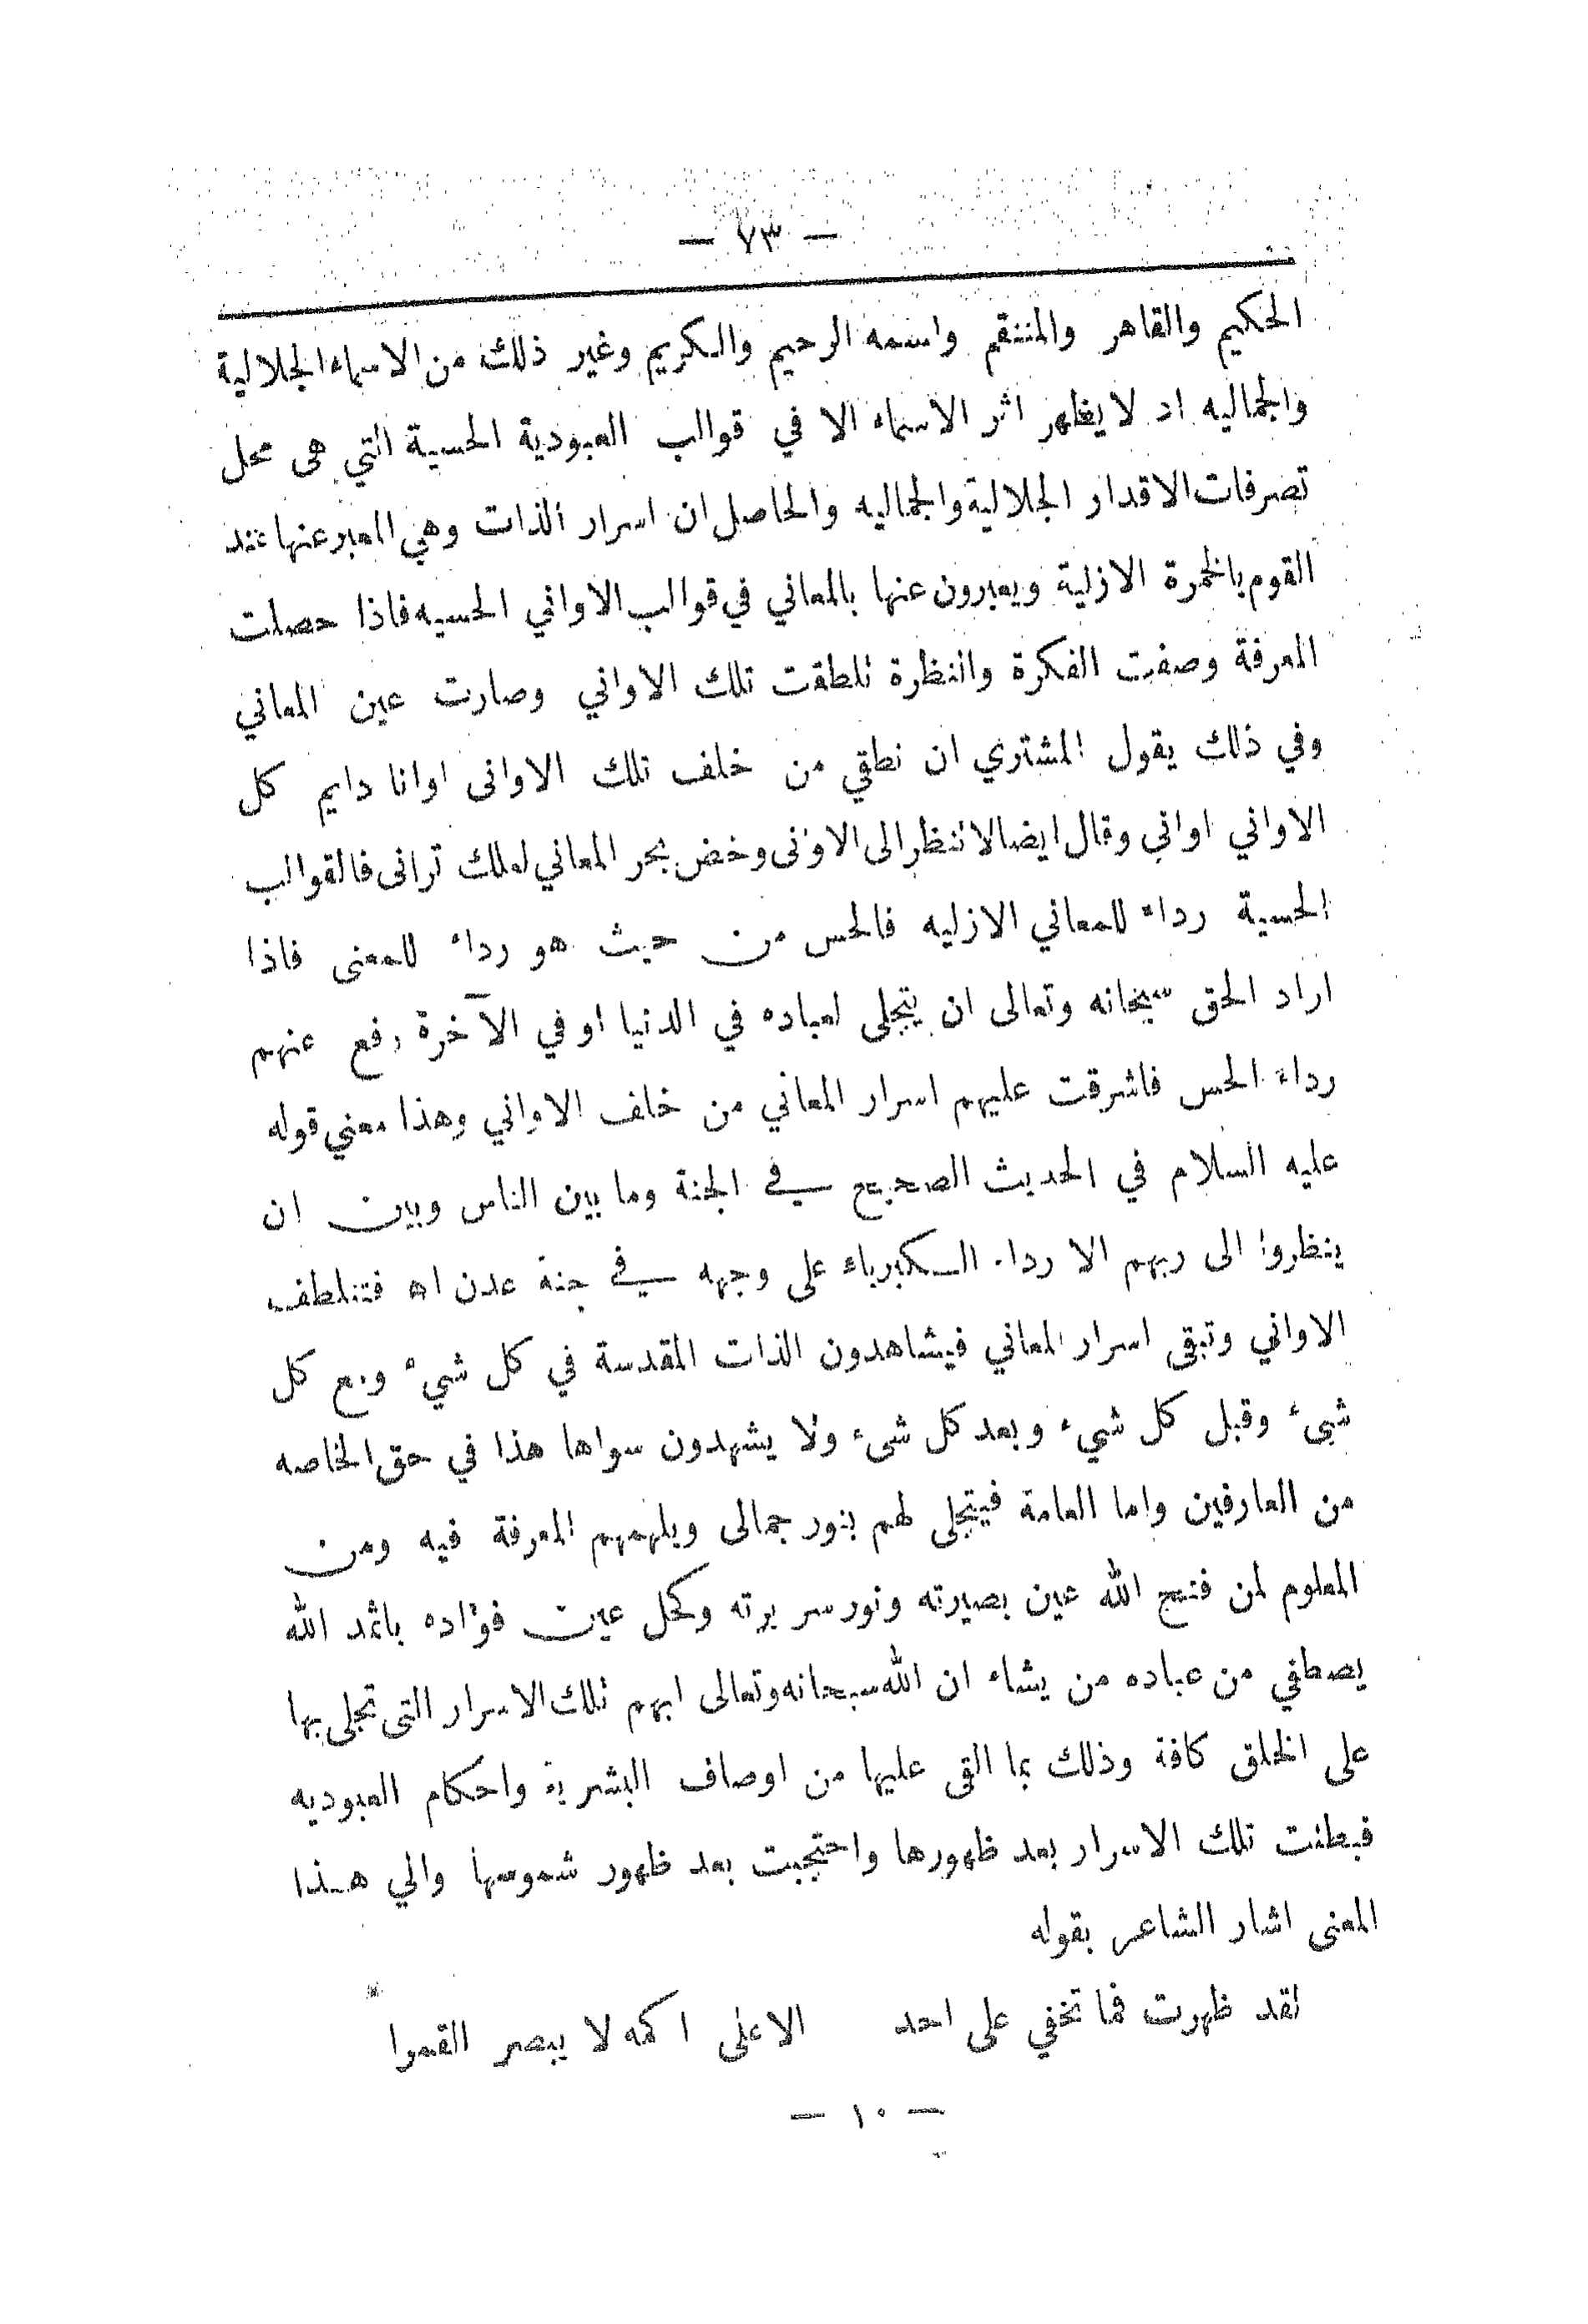 — ٧٣ —
الحكيم والقاهر والمنتقم واسمه الرحيم والكريم وغير ذلك من الاسماء الجلالية
والجماليه اد لا يظهر اثر الاسماء الا في قوالب العبودية الحسية التي هى محل
تصرفات الاقدار الجلالية والجماليه والحاصل ان اسرار الذات وهي المعبر عنها عند
القوم بالخمرة الازلية ويعبرون عنها بالمعاني في قوالب الاواني الحسيه فاذا حصلت
المعرفة وصفت الفكرة والنظرة تلطفت تلك الاواني وصارت عين المعاني
وفي ذلك يقول المشتري ان نطقي من خلف تلك الاوانى اوانا دايم كل
الاواني اواني وقال ايضا لا تنظر الى الاونى وخض بحر المعاني لعلك ترانى فالقوالب
الحسية رداء للمعاني الازليه فالحس من حيث هو رداء للمعنى فاذا
اراد الحق سبحانه وتعالى ان يتجلى لعباده في الدنيا او في الآخرة رفع عنهم
رداء الحس فاشرقت عليهم اسرار المعاني من خلف الاواني وهذا معني قوله
عليه السلام في الحديث الصحيح في الجنة وما بين الناس وبين ان
ينظروا الى ربهم الا رداء الكبرياء على وجهه في جنة عدن اه فتتلطف
الاواني وتبقى اسرار المعاني فيشاهدون الذات المقدسة في كل شيء ومع كل
شىء وقبل كل شيء وبعد كل شىء ولا يشهدون سواها هذا في حق الخاصه
من العارفين واما العامة فيتجلى لهم بنور جمالى ويلهمهم المعرفة فيه ومن
المعلوم لمن فتح الله عين بصيرته ونور سريرته وكحل عين فؤاده باثمد الله
يصطفي من عباده من يشاء ان الله سبحانه وتعالى ابهم تلك الاسرار التى تجلى بها
على الخلق كافة وذلك بما القى عليها من اوصاف البشرية واحكام العبوديه
فبطنت تلك الاسرار بعد ظهورها واحتجبت بعد ظهور شموسها والي هذا
المعنى اشار الشاعر بقوله
لقد ظهرت فما تخفي على احد الا على اكمه لا يبصر القمرا
— ١٠ —